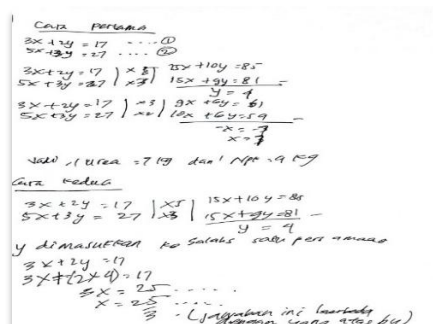 Cara pertama
3x + 2y = 17 .... ①
5x + 3y = 27 .... ②
3x + 2y = 17 | x 5 | 15x + 10y = 85
5x + 3y = 27 | x 3 | 15x + 9y = 81 -
y = 4
3x + 2y = 17 | x 3 | 9x + 6y = 51
5x + 3y = 27 | x 2 | 10x + 6y = 54 -
-x = -3
x = 3
Jadi, Urea = 7 kg dan NPK = 4 kg
Cara kedua
3x + 2y = 17 | x5 | 15x + 10y = 85
5x + 3y = 27 | x3 | 15x + 9y = 81 -
y = 4
y dimasukkan ke salah satu persamaan
3x + 2y = 17
3x + (2 x 4) = 17
3x = 25 .....
x = 25 .....
3
(jawaban ini berbeda
dengan yang atas bu)